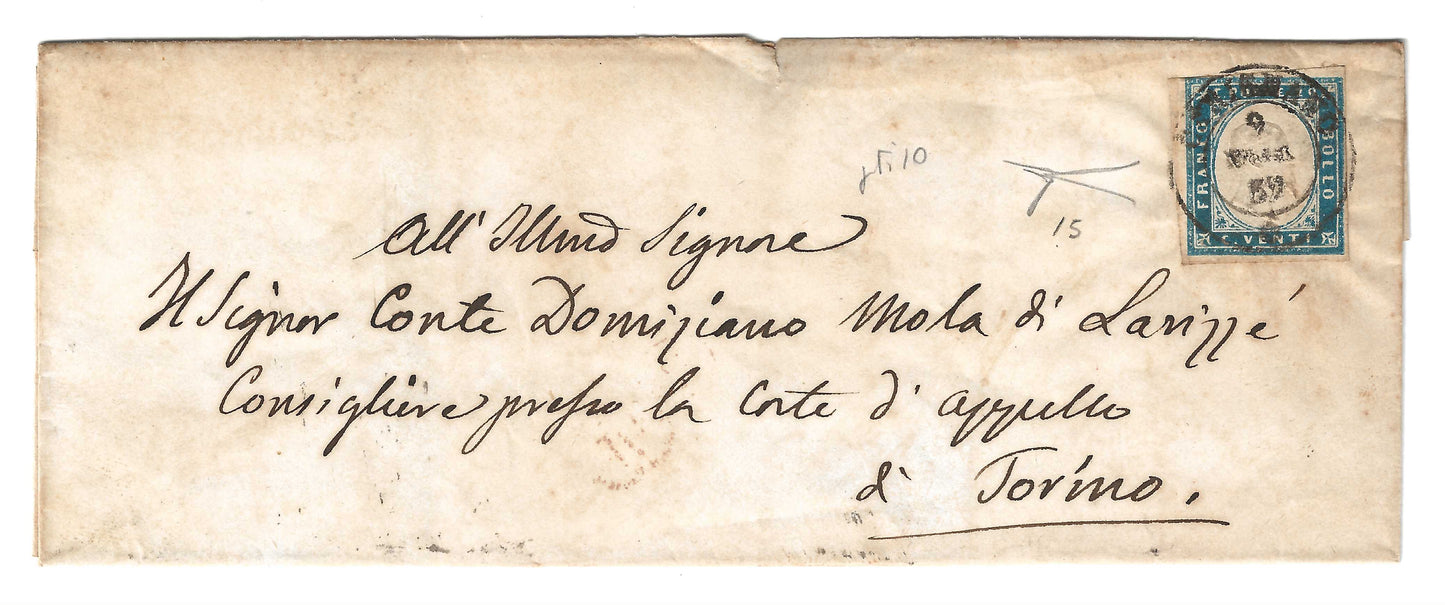 FRANCO
BOLLO
C. VENTI
9
59
10
15
All' Illmo Signore
Il Signor Conte Domiziano Mola di Larizzé
Consigliere presso la Corte d'appello
di Torino.